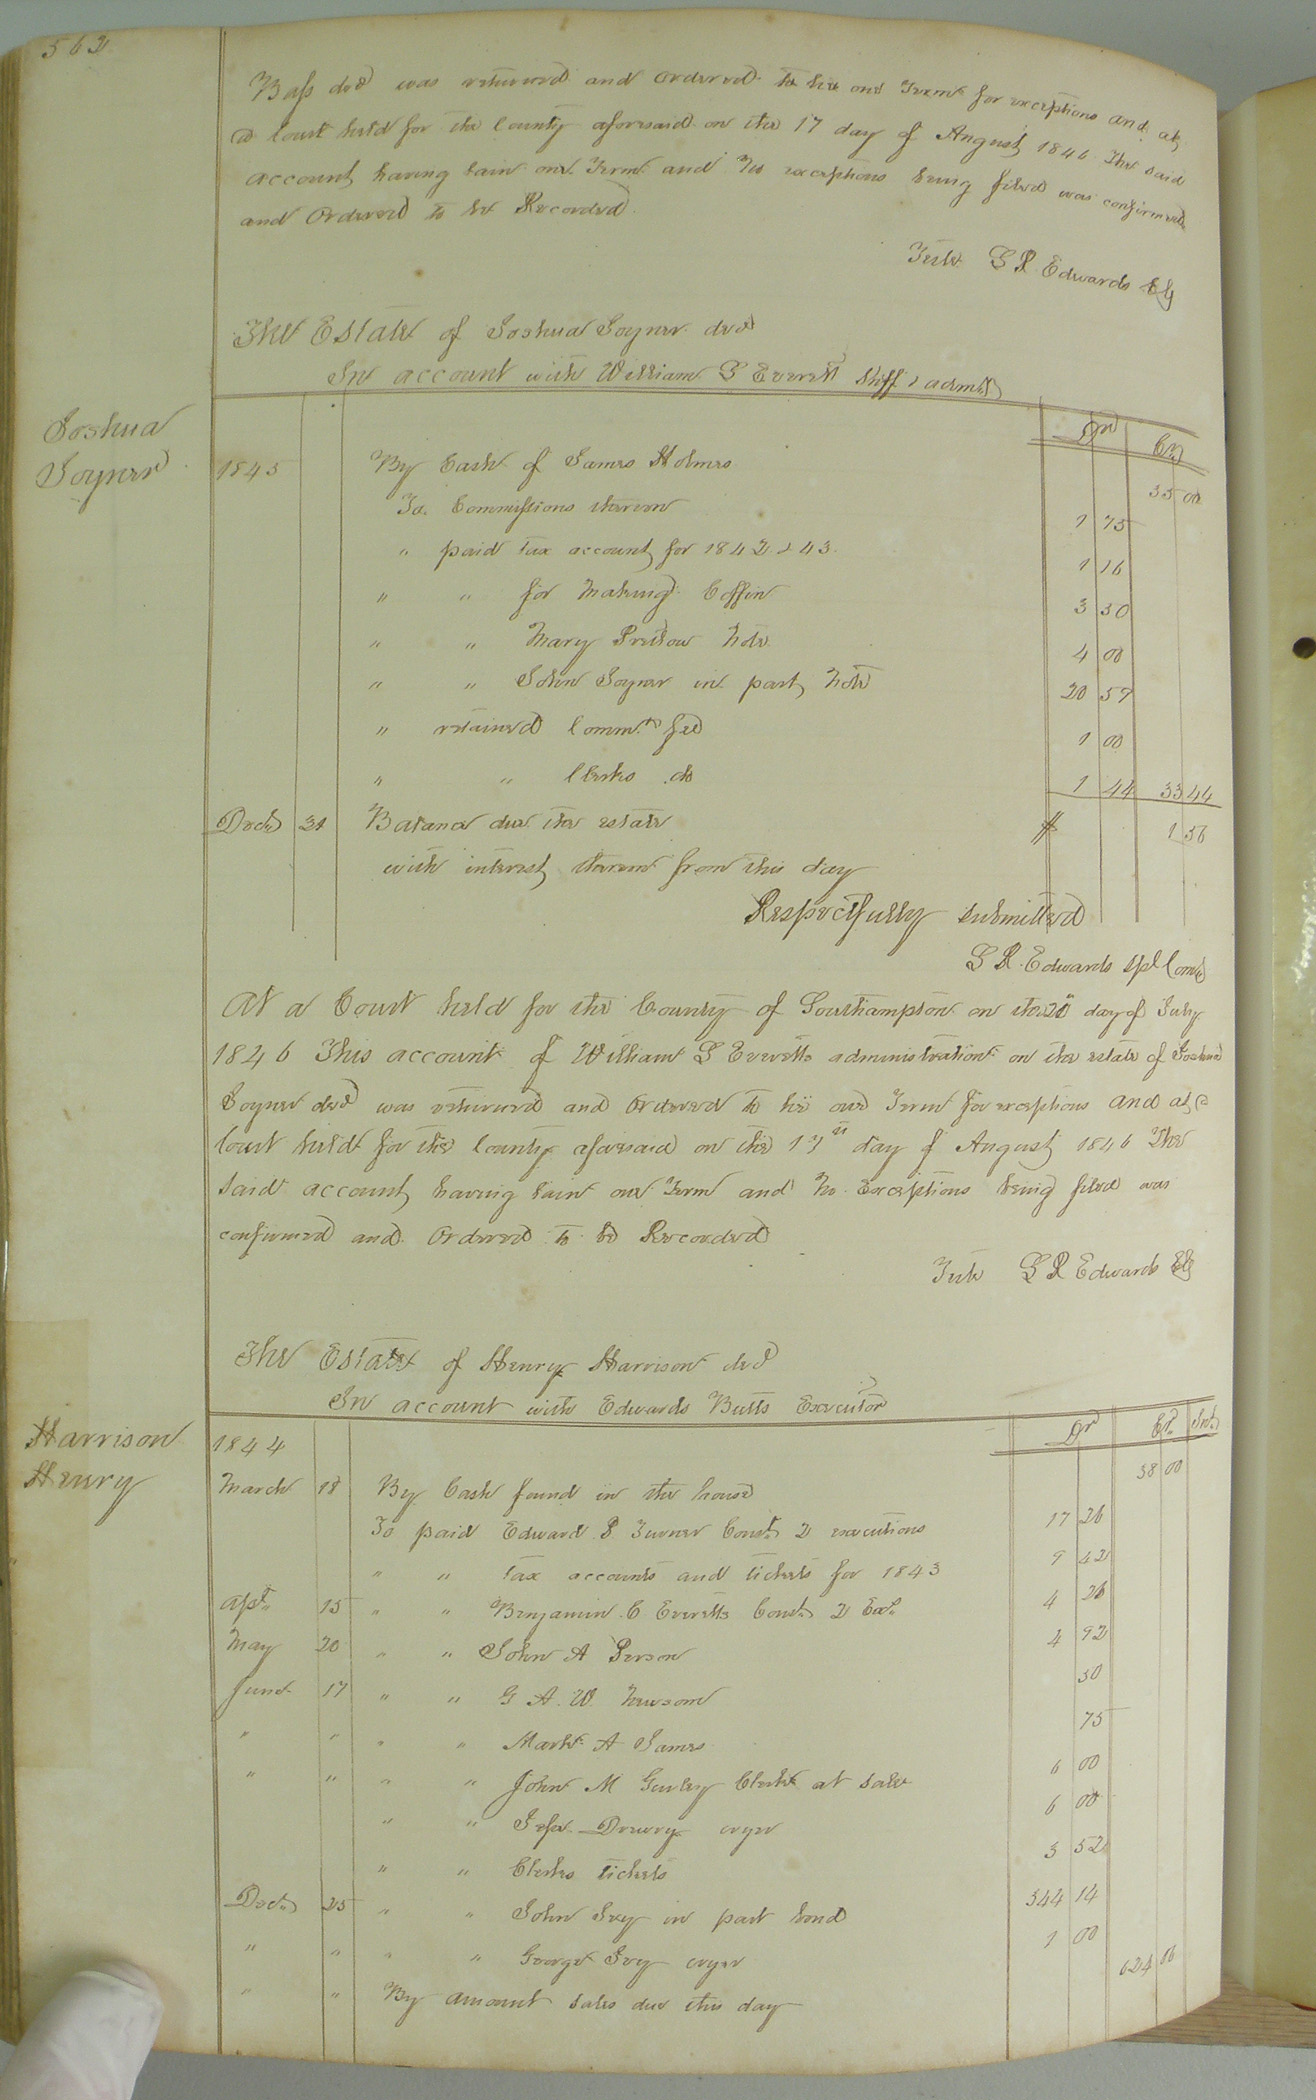 562
Bass decd was returned and ordered to lie one Term for exceptions and at
a Court held for the County aforesaid on the 17 day of August 1846 The said
account having lain one Term and no exceptions being filed was confirmed
and Ordered to be Recorded
Teste L R Edwards Clk
The Estate of Joshua Joyner decd
In account with William L Everett Shff & admr
Joshua
Joyner
Dr Cr
1843 By Cash of James Holmes 35 00
To Commissions thereon 1 75
" paid tax account for 1842 & 43 1 16
" " for Making Coffin 3 50
" " Mary Note 4 00
" " John Joyner in part Note 20 59
" retained Commrs fee 1 00
" " Clerks do 1 44 33 44
Decr 31 Balance due the estate $ 1 56
with interest thereon from this day
Respectfully submitted
L R Edwards Spl Comr
At a Court held for the County of Southampton on the 20th day of July
1846 This account of William L Everetts administration on the estate of Joshua
Joyner decd was returned and Ordered to lie one Term for exceptions and at a
Court held for the County aforesaid on the 17th day of August 1846 The
said account having lain one Term and no Exceptions being filed was
confirmed and Ordered to be Recorded
Teste L R Edwards Clk
The Estate of Henry Harrison decd
In account with Edwards Butts Executor
Harrison
Henry
Dr Cr Int
1844
March 18 By Cash found in the house 38 00
To paid Edward P Turner Const 2 executions 17 26
" " tax accounts and tickets for 1843 9 42
Apl 15 " " Benjamin C Everetts Const 2 Exo 4 26
May 20 " " John A Person 4 92
June 17 " " G A W Newsom 50
" " " " Mark A James 75
" " " " John M Gurley Clerk at sale 6 00
" " Drewry cryer 6 00
" " Clerks tickets 3 52
Decr 25 " " John Ivy in part bond 544 14
" " " " George Ivy cryer 1 00
" " By amount sales due this day 624 86